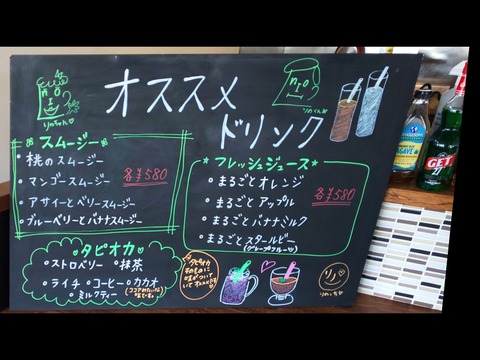 オススメ
ドリンク
りのちゃん
りのくん
スムージー
・桃のスムージー
・マンゴースムージー
・アサイーとベリースムージー
・ブルーベリーとバナナスムージー
各¥580
*フレッシュジュース*
・まるごとオレンジ
・まるごとアップル
・まるごとバナナミルク
・まるごとスタールビー
(グレープフルーツ)
各¥580
タピオカ
・ストロベリー ・抹茶
・ライチ ・コーヒー ・カカオ
・ミルクティー
タピオカ
そのものに
味がついて
いてオススメです
りのっち
AGAVE
GET